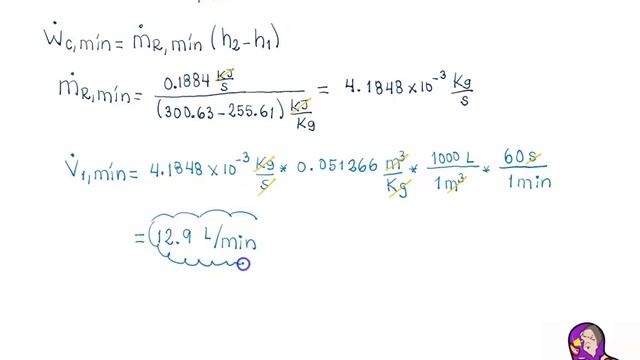 Ẇc,mín = ṁR,mín (h2 - h1)
ṁR,mín = 0.1884 KJ/s / (300.63 - 255.61) KJ/Kg = 4.1848 x 10^-3 Kg/s
V̇1,mín = 4.1848 x 10^-3 Kg/s * 0.051366 m³/Kg * 1000 L/1 m³ * 60 s/1 min
= 12.9 L/min